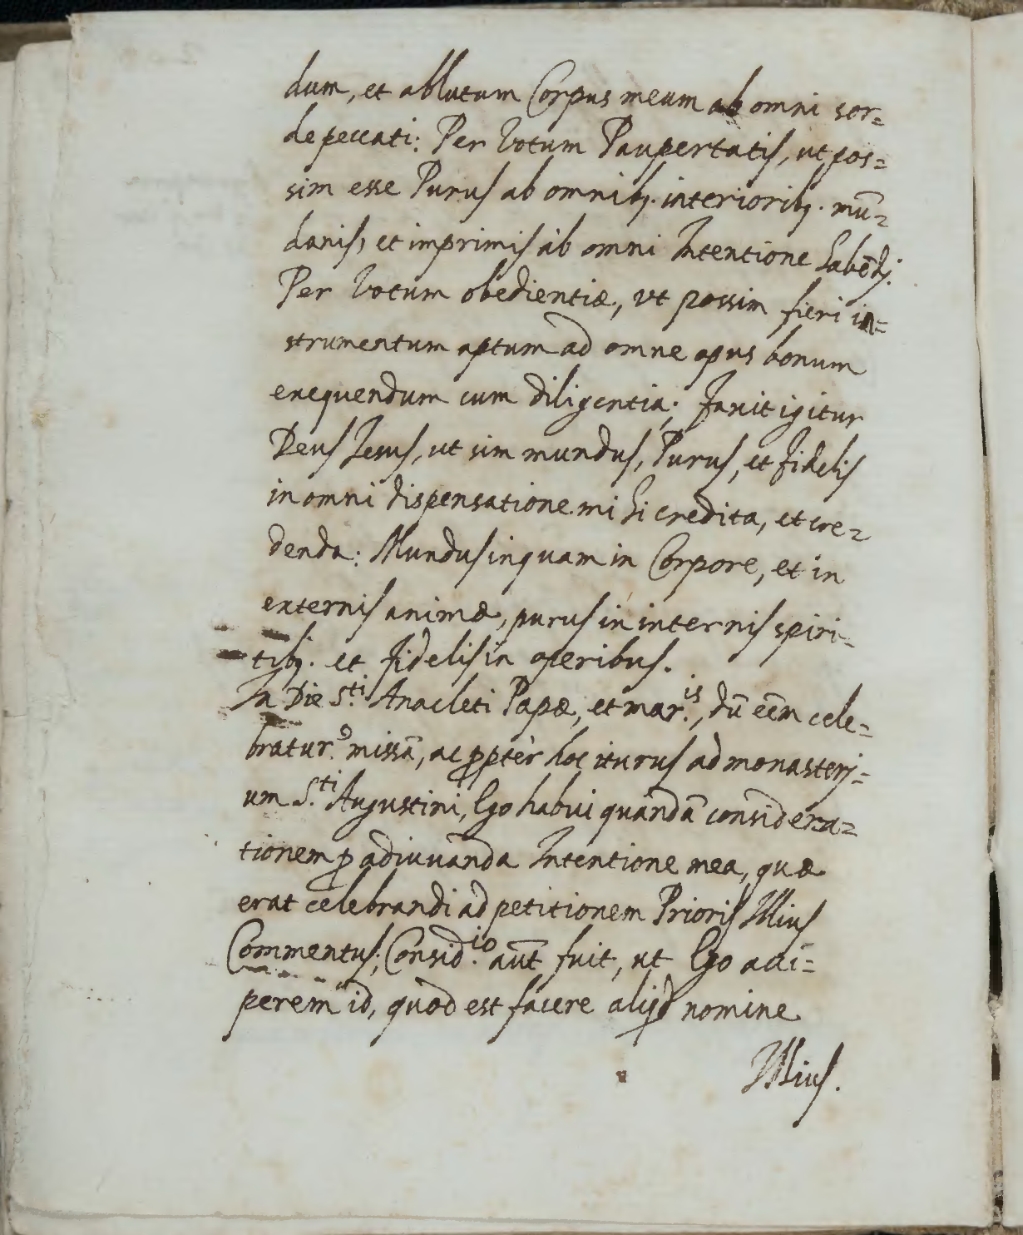 dum, et ablutum Corpus meum ab omni sor=
de peccati: Per Votum Paupertatis, ut pos=
sim esse Purus ab omnibꝫ. interioribꝫ. mū=
danis, et imprimis ab omni Intentione habēdj.
Per Votum obedientiæ, vt possim fieri in=
strumentum aptum ad omne opus bonum
exequendum cum diligentia; faxit igitur
Deus Jesus, ut sim mundus, Purus, et fidelis
in omni dispensatione mihi credita, et cre=
denda: Mundus inquam in Corpore, et in
externis animæ, purus in internis spiri=
tibꝫ. et fidelis in operibus.
In Die S.ti Anacleti Papæ, et mar.is, dū eēm cele=
bratur.9 missā, ac ꝓpter hoc iturus ad monasterj=
um S.ti Augustini, Ego habui quandā considera=
tionem ꝓ adiuvanda Intentione mea, quæ
erat celebrandi ad petitionem Prioris Illius
Conventus; Consid.io aūt fuit, ut Ego acci=
perem id, quod est facere aliqd nomine
Illius.